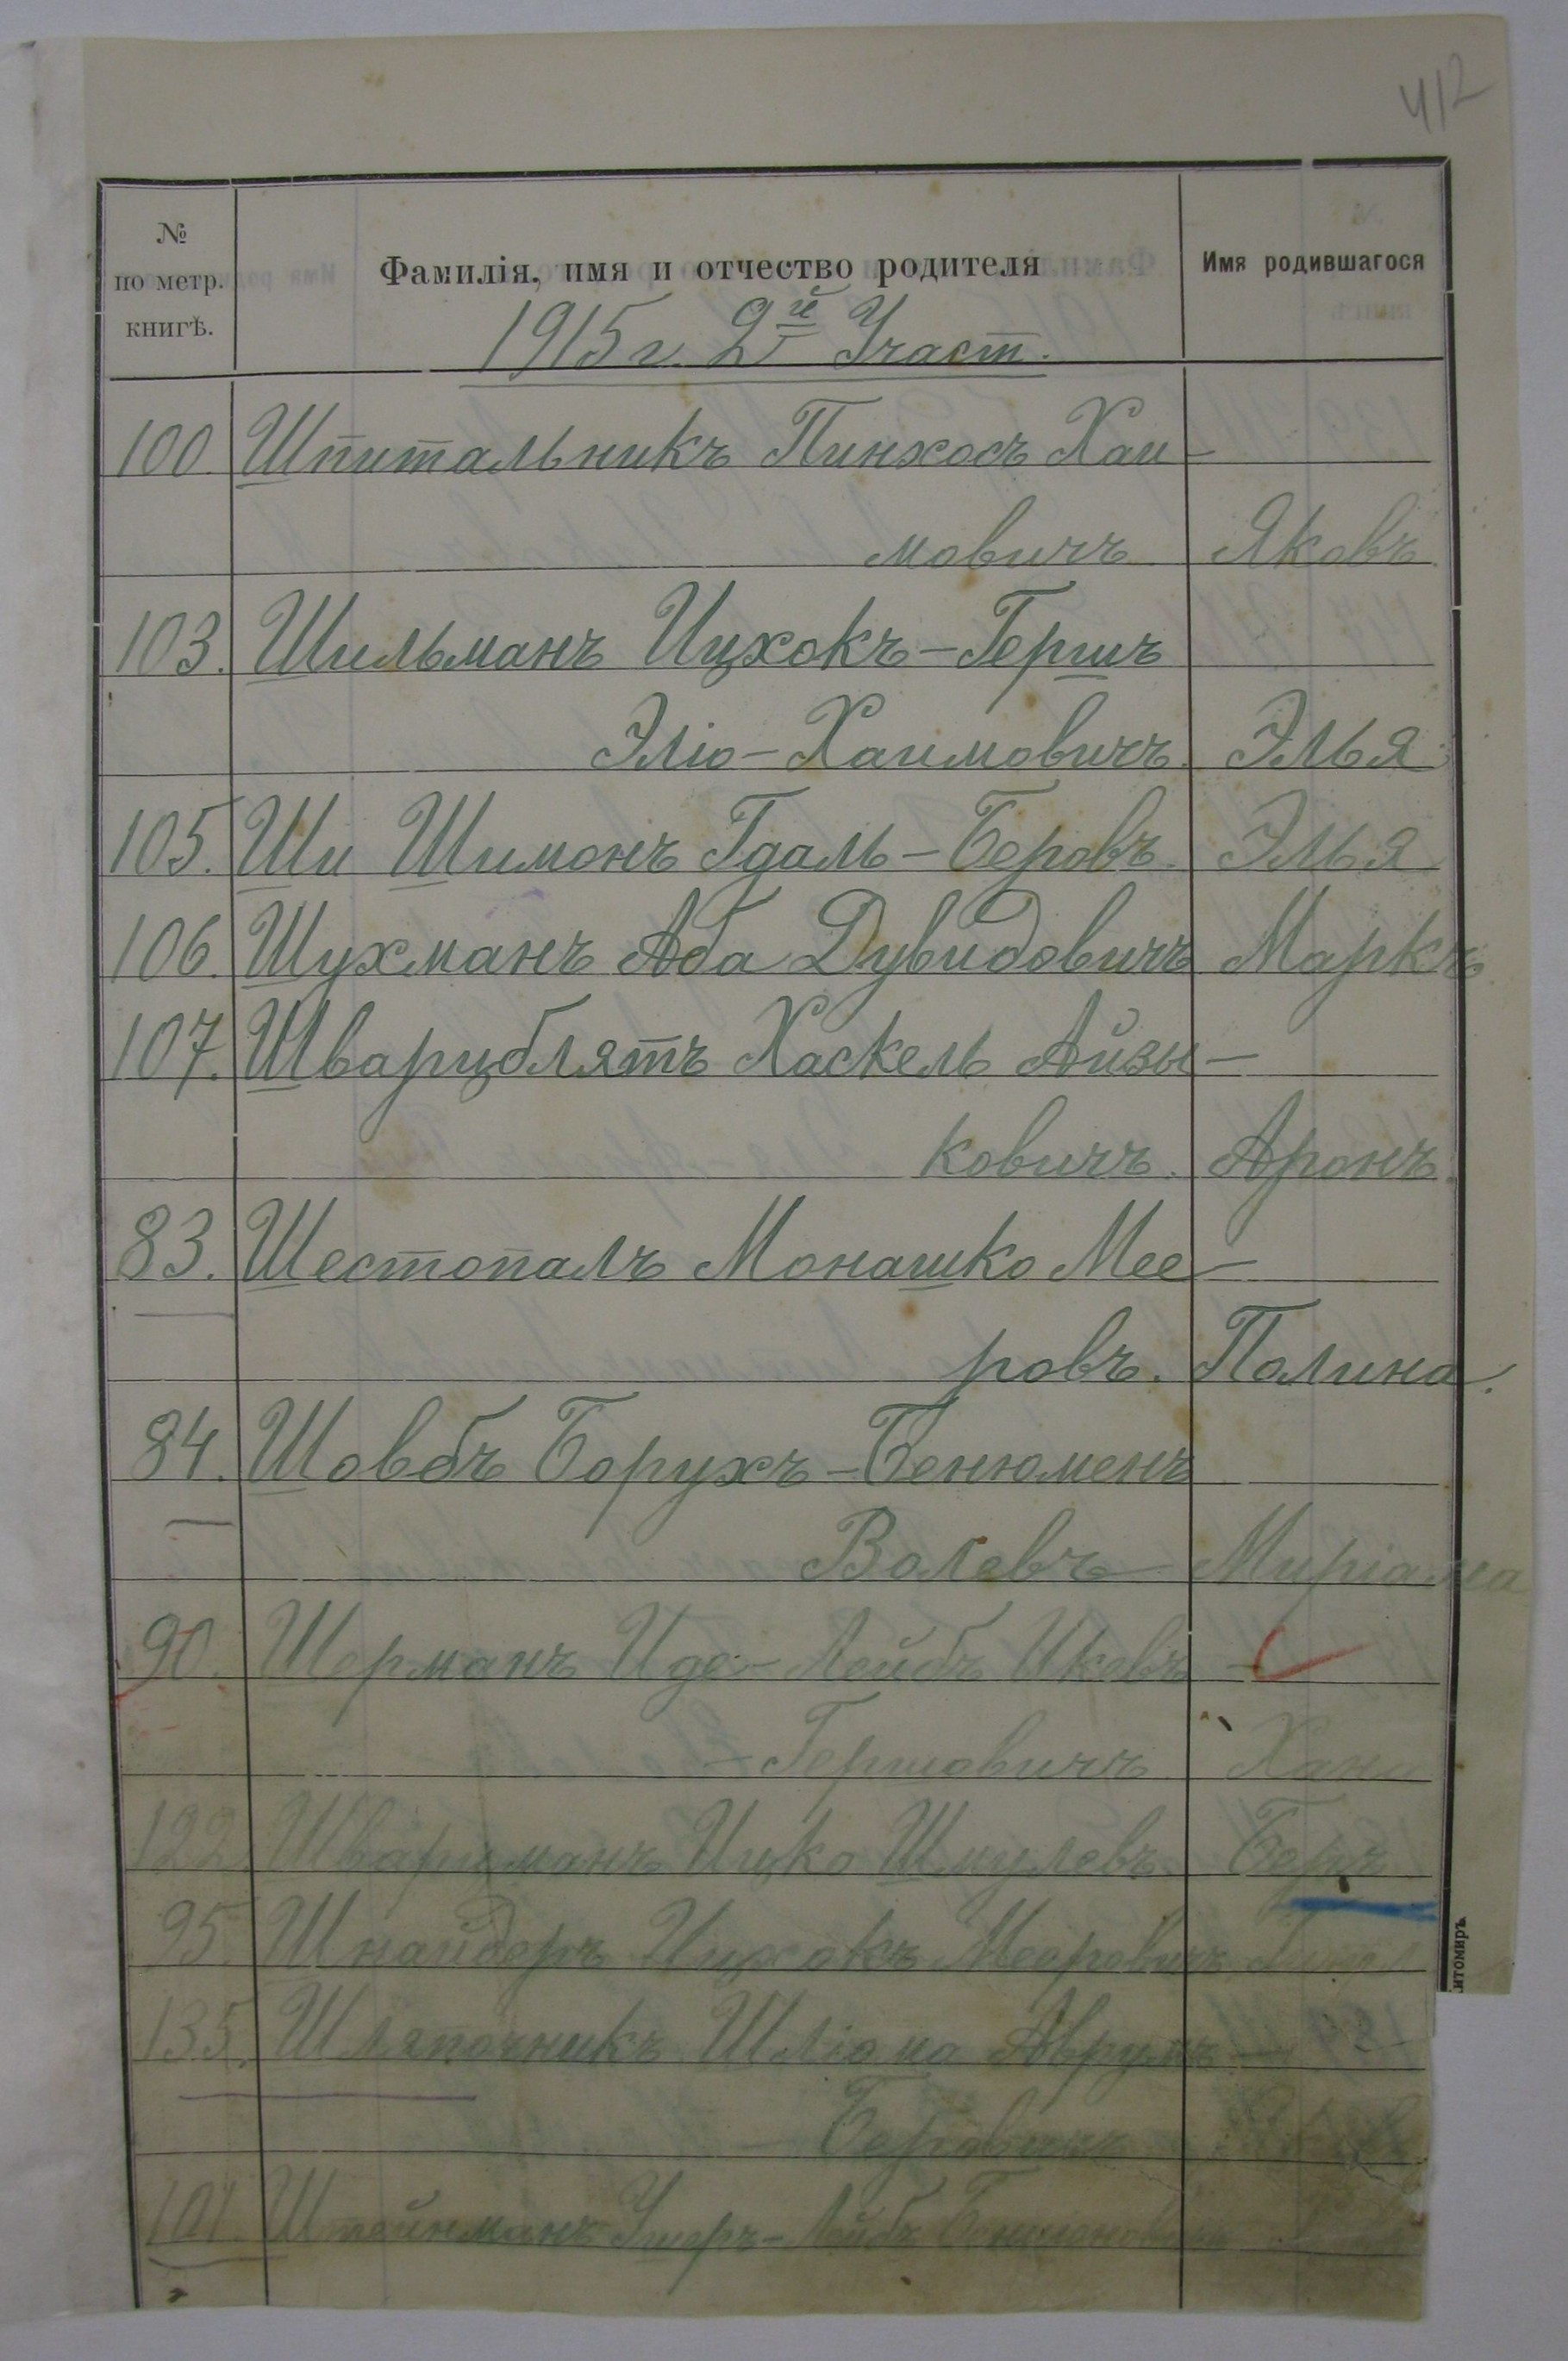 412
№ по метр. книгѣ. Фамилія, имя и отчество родителя Имя родившагося
1915 г. 2й Участ.
100. Шпитальникъ Пинхосъ Хаи-
мовичъ. Яковъ.
103. Шильманъ Ицхокъ-Гершъ
Эліо-Хаимовичъ. Элья.
105. Ши Шимонъ Гдаль-Беровъ. Элья
106. Шухманъ Аба Дувидовичъ Маркъ
107. Шварцблятъ Хаскель Айзы-
ковичъ. Аронъ.
83. Шестопалъ Монашко Мее-
ровъ. Полина.
84. Шовбъ Борухъ-Бенюменъ
Волевъ Миріама
90. Шерманъ Иде-Лейбъ Иковъ-
-Гершовичъ Хана
122. Шварцманъ Ицко Шмулевъ. Беръ
95. Шнайдеръ Ицхокъ Мееровичъ
135. Шляпочникъ Шліома Аврумъ-
Беровичъ
101. Штейнманъ Ушеръ-Лейбъ
итомиръ